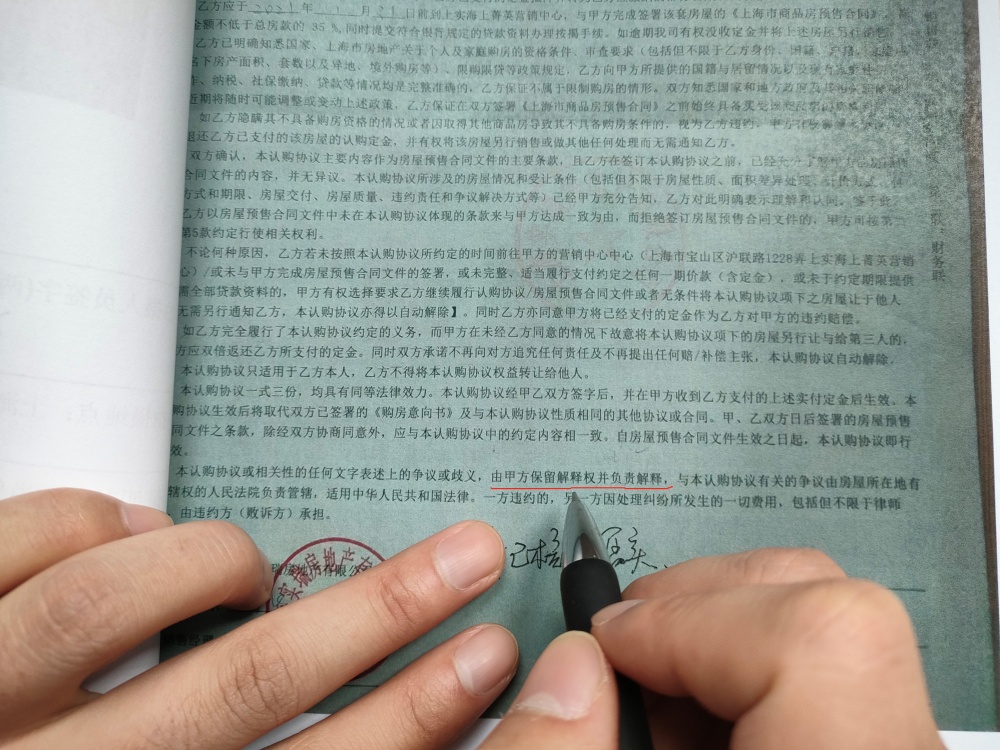 乙方应于 2021 年 月 21 日前往上实海上菁英营销中心，与甲方完成签署该套房屋的《上海市商品房预售合同》，
金额不低于总房款的 35 %，同时提交符合银行规定的贷款资料办理按揭手续。如逾期我司有权没收定金并将上述房屋另行销售
乙方已明确知悉国家、上海市房地产关于个人及家庭购房的资格条件、审查要求（包括但不限于乙方身份、国籍、户籍、
名下房产面积、套数以及异地、境外购房等）、限购限贷等政策规定，乙方向甲方所提供的国籍与居留情况以及
纳税、社保缴纳、贷款等情况均是完整准确的，乙方保证不属于限制购房的情形。双方知悉国家和地方政府及
近期将随时可能调整或变动上述政策，乙方保证在双方签署《上海市商品房预售合同》之前始终具备
如乙方隐瞒其不具备购房资格的情况或者因取得其他商品房导致其不具备购房条件的，视为乙方违约，甲方
还乙方已支付的该房屋的认购定金，并有权将该房屋另行销售或做其他任何处理而无需通知乙方。
双方确认，本认购协议主要内容作为房屋预售合同文件的主要条款，且乙方在签订本认购协议之前，已经
合同文件的内容，并无异议。本认购协议所涉及的房屋情况和受让条件（包括但不限于房屋性质、面积差异处理、
方式和期限、房屋交付、房屋质量、违约责任和争议解决方式等）已经甲方充分告知，乙方对此明确表示理解和认同。
乙方以房屋预售合同文件中未在本认购协议体现的条款来与甲方达成一致为由，而拒绝签订房屋预售合同文件的，甲方可按第
第5款约定行使相关权利。
不论何种原因，乙方若未按照本认购协议所约定的时间前往甲方的营销中心中心（上海市宝山区沪联路1228弄上实海上菁英营销
心）/或未与甲方完成房屋预售合同文件的签署，或未完整、适当履行支付约定之任何一期价款（含定金），或未于约定期限提供
需全部贷款资料的，甲方有权选择要求乙方继续履行认购协议/房屋预售合同文件或者无条件将本认购协议项下之房屋让于他人
无需另行通知乙方，本认购协议亦得以自动解除】。同时乙方亦同意甲方将已经支付的定金作为乙方对甲方的违约赔偿。
如乙方完全履行了本认购协议约定的义务，而甲方在未经乙方同意的情况下故意将本认购协议项下的房屋另行让与给第三人的，
方应双倍返还乙方所支付的定金。同时双方承诺不再向对方追究任何责任及不再提出任何赔/补偿主张，本认购协议自动解除。
本认购协议只适用于乙方本人，乙方不得将本认购协议权益转让给他人。
本认购协议一式三份，均具有同等法律效力。本认购协议经甲乙双方签字后，并在甲方收到乙方支付的上述实付定金后生效。本
购协议生效后将取代双方已签署的《购房意向书》及与本认购协议性质相同的其他协议或合同。甲、乙双方日后签署的房屋预售
同文件之条款，除经双方协商同意外，应与本认购协议中的约定内容相一致。自房屋预售合同文件生效之日起，本认购协议即行
效。
本认购协议或相关性的任何文字表述上的争议或歧义，由甲方保留解释权并负责解释，与本认购协议有关的争议由房屋所在地有
辖权的人民法院负责管辖，适用中华人民共和国法律。一方违约的，另一方因处理纠纷所发生的一切费用，包括但不限于律师
由违约方（败诉方）承担。
瑞房地产有限公
实瑞房地产有
售经理
联：财务联